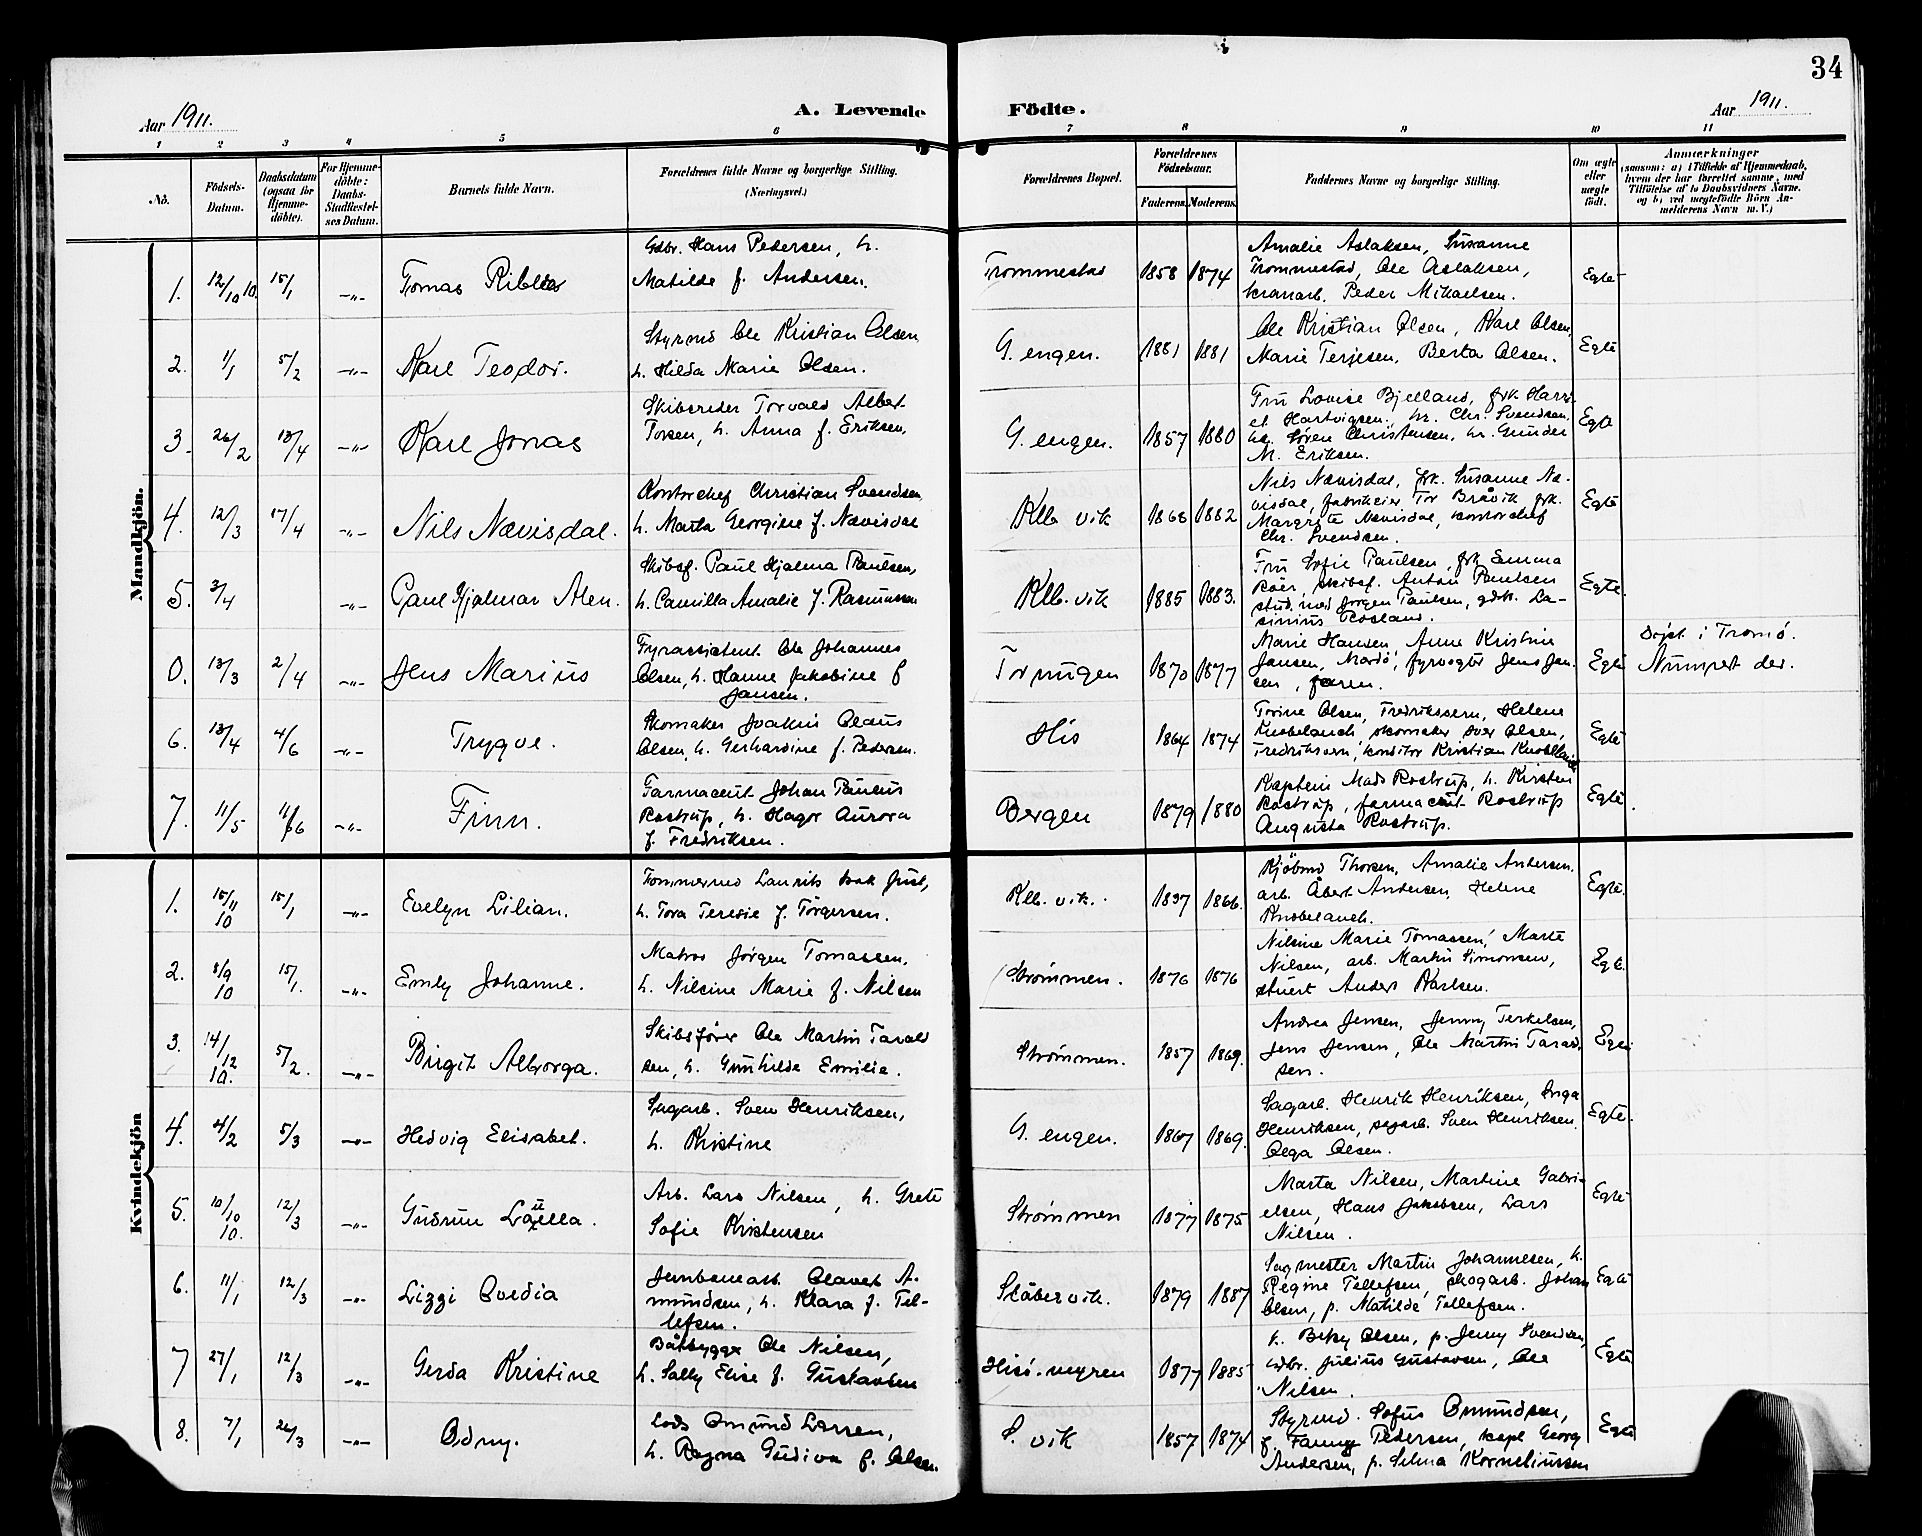 34
Aar 1911.
A. Levende
Födte.
Aar 1911.
1 2 3 4 5 6 7 8 9 10 11
No.
Födsels-
Datum.
Daabsdatum
(ogsaa for
Hjemme-
döbte).
For Hjemme-
döbte:
Daabs-
Stadfæstel-
ses Datum.
Barnets fulde Navn.
Forældrenes fulde Navne og borgerlige Stilling.
(Næringsvei.)
Forældrenes Bopæl.
Forældrenes
Födselsaar.
Faderens. Moderens.
Faddernes Navne og borgerlige Stilling.
Om ægte
eller
uægte
født.
Anmærkninger
(saasom: a) i Tilfælde af Hjemmedaab,
hvem der har forrettet samme, med
Tilföielse af to Daabsvidners Navne,
og b) ved uægtefödte Börn An-
melderens Navn m. V.)
Mandkjön.
1. 12/10 10. 15/1 -"- Tomas
Gdbr. Hans Pedersen, h.
Matilde f. Andersen.
Trommestad 1858 1874
Amalie Aslaksen, Susanne
Trommestad, Ole Aslaksen,
kranarb. Peder Mikaelsen.
Egte
2. 1/1 5/2 -"- Karl Teodor.
Styrmd Ole Kristian Olsen
h. Hilda Marie Olsen.
G. engen. 1881 1881
Ole Kristian Olsen, Karl Olsen,
Marie Terjesen, Berta Olsen.
Egte
3. 26/2 13/4 -"- Karl Jonas
Skibsreder Torvald Albert
Torsen, h. Anna f. Eriksen.
G. engen. 1857 1880
Fru Lovise Bjelland, frk. Harri-
et Hartvigsen, hr. Chr. Svendsen,
hr. Søren Christensen, hr. Gunder
M. Eriksen.
Egte
4. 12/3 17/4 -"- Nils Nævisdal.
Kontorchef Christian Svendsen
h. Marta Georgine f. Nævisdal
Klb. vik 1868 1882
Nils Nævisdal, frk. Susanne Næ-
visdal, fabrikeier Tor Bråvik, frk.
Margrete Nævisdal, kontorchef
Chr. Svendsen.
Egte
5. 3/4 -"- Paul Hjalmar Alen.
Skibsf. Paul Hjalma Paulsen,
h. Camilla Amalie f. Rasmussen
Klb. vik 1885 1883.
Fru Sofie Paulsen, frk Emma
Röer, skibsf. Anton Paulsen
stud. med Jørgen Paulsen, gdbr. La-
Rosland.
Egte.
0. 13/3 2/4 -"- Jens Marius
Fyrassistent Ole Johannes
Olsen, h. Hanne Jakobine f
Jansen.
Torungen 1870 1877
Marie Hansen, Anne Kristine
Jansen, Mardö, fyrvogter Jens Jan-
sen, faren.
Egte
Döpt i Tromö.
Numrert der.
6. 13/4 4/6 -"- Trygve.
Skomaker Joakim Olaus
Olsen, h. Gerhardine f. Pedersen.
His 1864 1874
Torine Olsen, Fredriksvern, Helene
Knobelauch, skomaker Iver Olsen,
Fredriksvern, konditor Kristian Knobelauch
Egte
7. 11/5 11/6 -"- Finn.
Farmaceut Johan Paulus
Rostrup, h. Hagor Aurora
f. Fredriksen.
Bergen 1879 1880
Kaptein Mads Rostrup, h. Kirsten
Rostrup, farmaceut Rostrup
Augusta Rostrup.
Egte.
Kvindekjön
1. 15/11 10 15/1 -"- Evelyn Lilian.
Tommermd Laurits Isak Juul,
h. Tora Teresie f. Törgersen.
Klb. vik. 1866.
Kjöbmd Thorsen, Amalie Andersen,
arb. Åbert Andersen, Helene
Knobelauch.
Egte.
2. 8/9 10 15/1. -"- Emly Johanne.
Matros Jörgen Tomassen,
h. Nilsine Marie f. Nilsen
Strömmen. 1876 1876
Nilsine Marie Tomassen, Marte
Nilsen, arb. Martin Simonsen,
stuert Anders Karlsen.
Egte.
3. 14/12 10. 5/2. -"- Birgit Alborga.
Skibsfører Ole Martin Tarald
sen, h. Gunhilde Emilie.
Strömmen. 1857 1869.
Andrea Jensen, Jenny Terkelsen,
Jens Jensen, Ole Martin Tarald-
sen.
Egte
4. 4/2 5/3 -"- Hedvig Elisabet.
Sagarb. Sven Henriksen,
h. Kristine
G. engen. 1867 1869.
Sagarb. Henrik Henriksen, Inga
Henriksen, sagarb. Sven Henriksen.
Olga Olsen.
Egte.
5. 10/10 10. 12/3 -"- Gudrun Luella.
Arb. Lars Nilsen, h. Grete
Sofie Kristensen
Strömmen 1877 1875
Marta Nilsen, Martine Gabri-
elsen, Hans Jakobsen, Lars
Nilsen.
Egte
6. 11/1 12/3 -"- Lizzi Ovedia
Jernbanearb. Olavet A-
mundsen, h. Klara f. Tel-
lefsen.
Skåbervik. 1879 1887
Sagmester Martin Johannesen, h.
Regine Tellefsen, skogarb. Johan
Olsen, p. Matilde Tellefsen.
Egte
7 27/1 12/3 -"- Gerda Kristine
Båtbygge Ole Nilsen,
h. Sally Elise f. Gustavsen
Hisö. myren 1877 1885
h. Betsy Olsen, p. Jenny Svendsen,
Julius Gustavsen, Ole
Nilsen.
Egte
8. 7/1 26/3 -"- Odny.
Lods Omund Larsen,
h. Ragna Gudiva f. Olsen
S. vik 1857 1874
Styrmd. Sofus Omundsen,
f. Fanny Pedersen, kapt Georg
Andersen, p. Selma Korneliussen
Egte